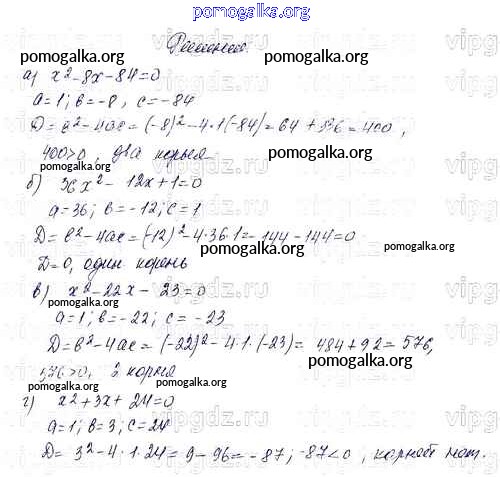 pomogalka.org
Решение.
pomogalka.org pomogalka.org
а) x² - 8x - 84 = 0
a = 1; b = -8, c = -84
D = b² - 4ac = (-8)² - 4·1(-84) = 64 + 336 = 400,
400>0, два корня
pomogalka.org pomogalka.org
б) 36x² - 12x + 1 = 0
a = 36; b = -12; c = 1
D = b² - 4ac = (-12)² - 4·36·1 = 144 - 144 = 0
pomogalka.org pomogalka.org
D = 0, один корень
в) x² - 22x - 23 = 0
pomogalka.org pomogalka.org
a = 1; b = -22; c = -23
D = b² - 4ac = (-22)² - 4·1·(-23) = 484 + 92 = 576,
pomogalka.org
576>0, 2 корня
pomogalka.org pomogalka.org
г) x² + 3x + 24 = 0
a = 1; b = 3; c = 24
pomogalka.org
D = 3² - 4·1·24 = 9 - 96 = -87; -87<0, корней нет.
pomogalka.org